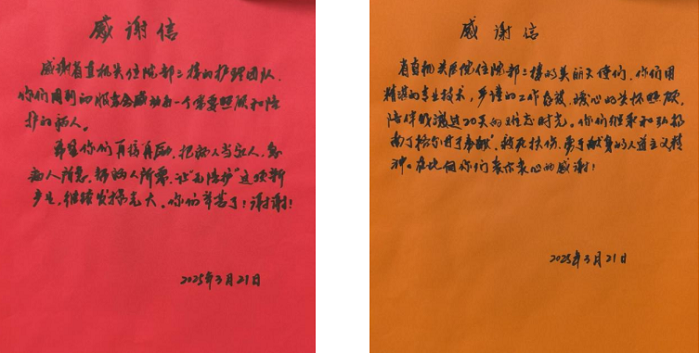 感谢信
感谢省直机关住院部二楼的护理团队，
你们周到的服务感动每一个需要照顾和陪
护的病人。
希望你们再接再厉，把病人当亲人，急
病人所急，帮病人所需，让“无陪护”这项新
产生，继续发扬光大。你们辛苦了！谢谢！
2025年3月21日
感谢信
省直机关医院住院部二楼的美丽天使们，你们用
精湛的专业技术，严谨的工作态度，暖心的关怀照顾，
陪伴我度过20天的难忘时光。你们继承和弘扬
南丁格尔甘于奉献、救死扶伤、勇于献身的人道主义精
神。在此向你们表示衷心的感谢！
2025年3月21日